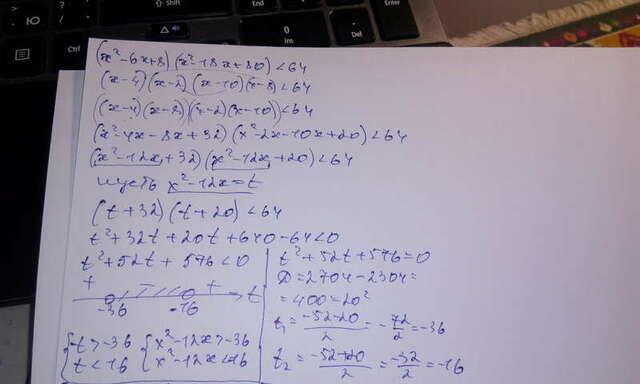 Shift
Ins
Del
(x²-6x+8)(x²-18x+80)<64
(x-4)(x-2)(x-10)(x-8)<64
((x-4)(x-8))((x-2)(x-10))<64
(x²-4x-8x+32)(x²-2x-10x+20)<64
(x²-12x+32)(x²-12x+20)<64
пусть x²-12x=t
(t+32)(t+20)<64
t²+32t+20t+640-64<0
t²+52t+576<0
+ +
-36 -16 t
{t>-36 {x²-12x>-36
t<-16 x²-12x<-16
t²+52t+576=0
D=2704-2304=
=400=20²
t₁=(-52-20)/2=-72/2=-36
t₂=(-52+20)/2=-32/2=-16